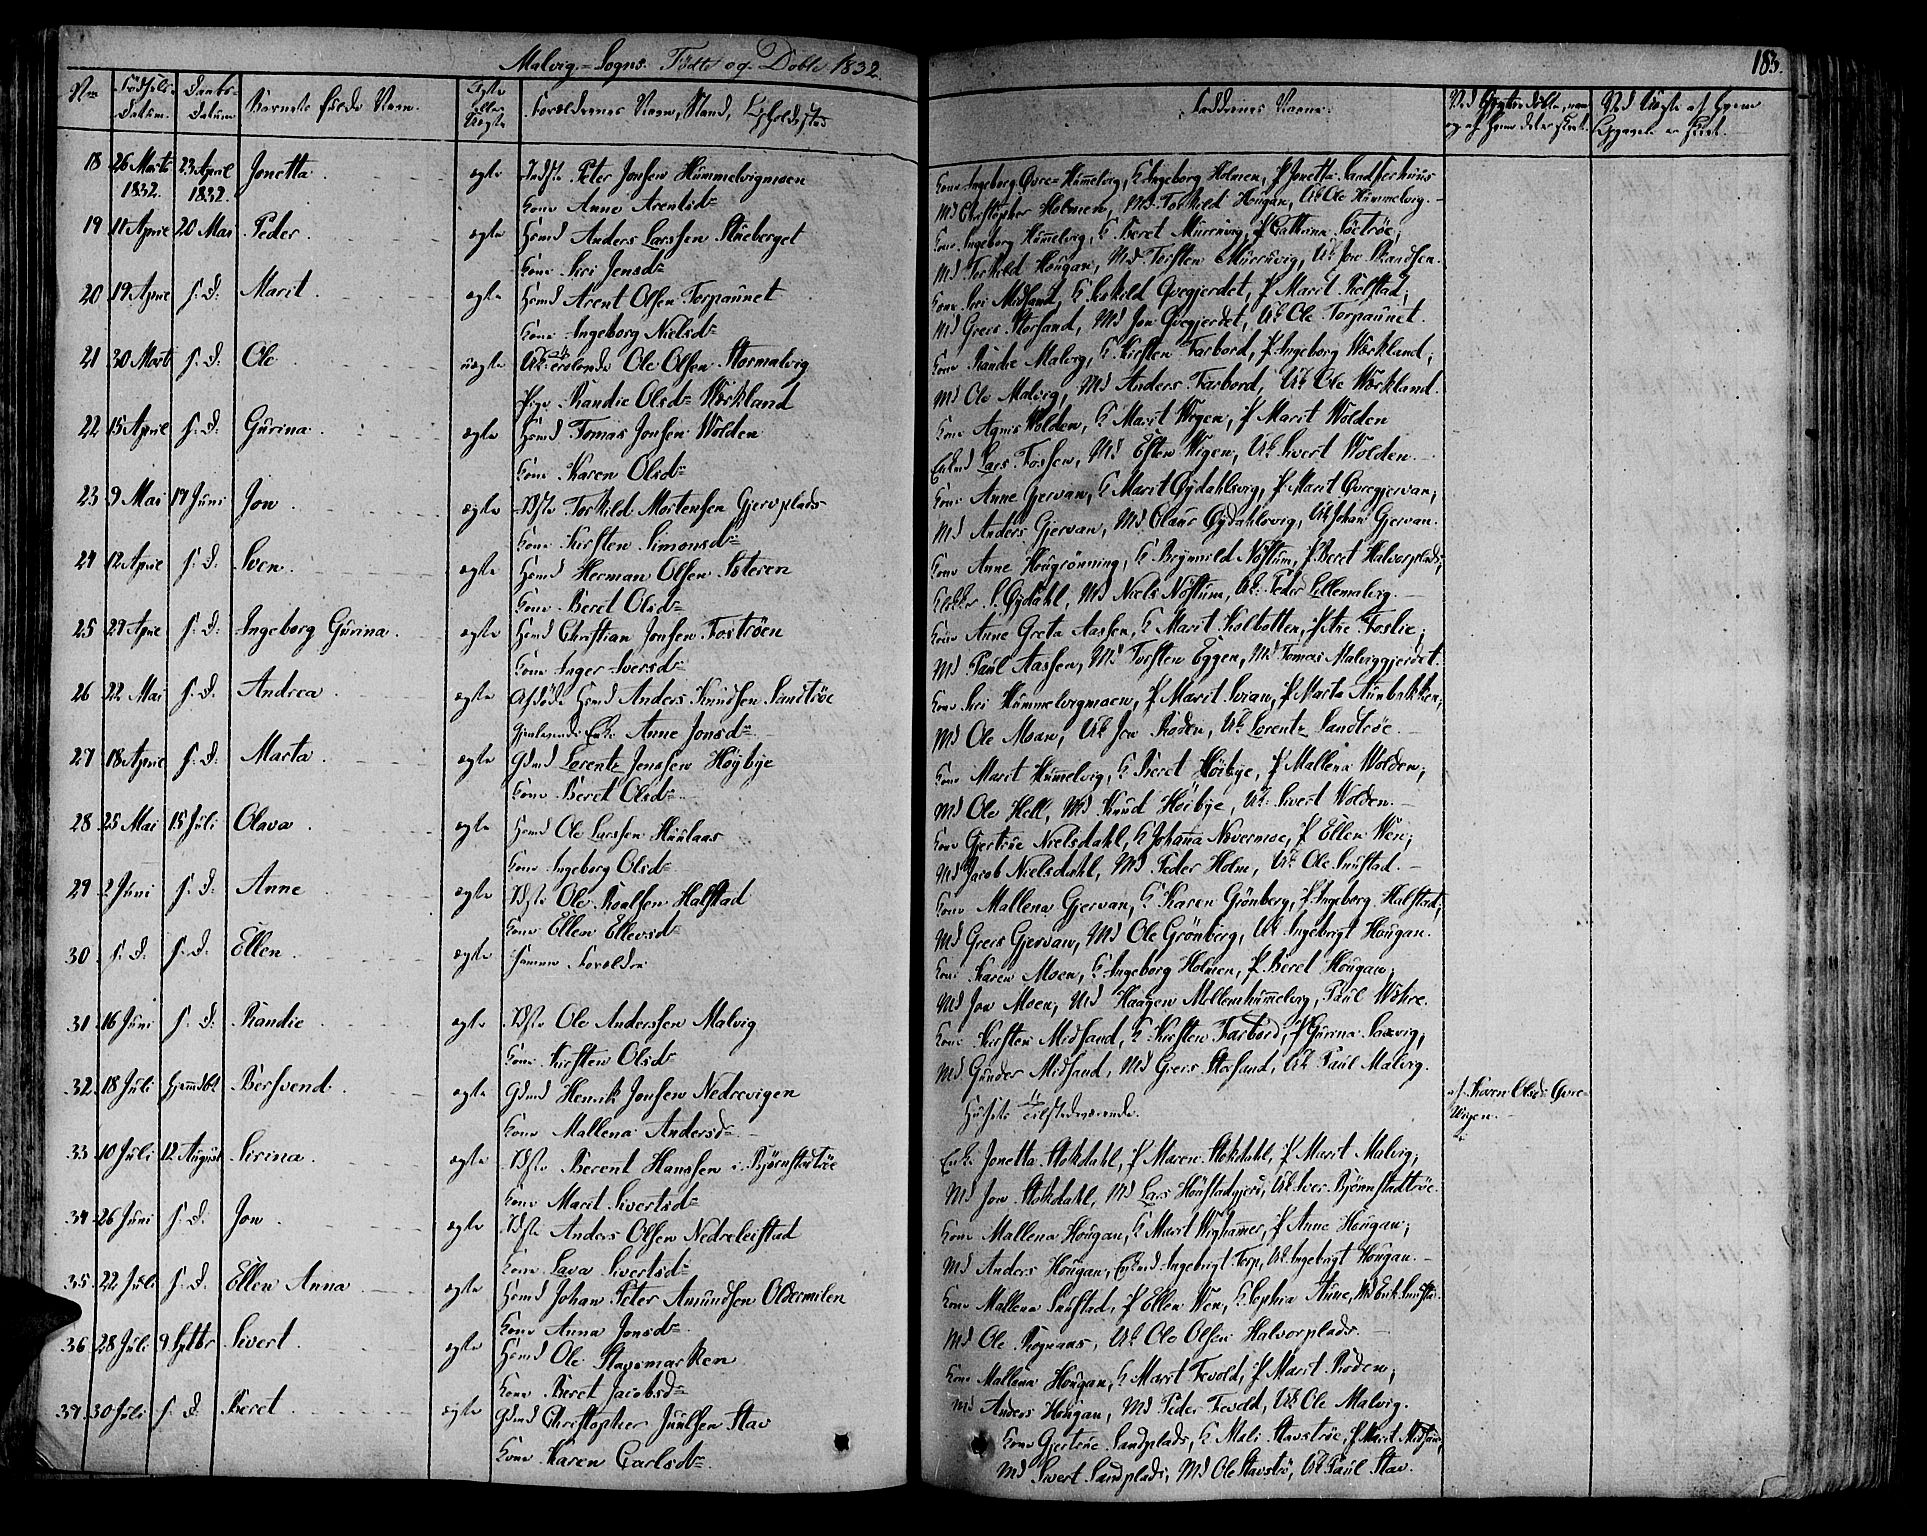 Malvig-Sogns Födte og Döbte 1832.
183.
No
Födsels-Datum.
Daabs-Datum
Barnets fulde Navn.
Ægte eller Uægte
Forældrenes Navn, Stand, Opholdssted
Faddernes Navne.
18 26 Marts 1832. 23 April 1832. Jonetta ægte Indst Peter Jonsen Hummelvigmoen
Kone Anne Arentsdr
Kone Ingeborg Øvre-Hummelvig, K Ingeborg Holmen, P Jonetta
Md Christopher Holmen, Md Torkild Hougan, Uk Ole Hummelvig.
19 11 April 20 Mai Peder ægte Hsmd Anders Larssen Stueberget
Kone Siri Jensdr
Kone Ingeborg Hummelvig, K Beret Muruvig, P Cathrina
Md Torkild Hougan, Md Torsten Muruvig, Uk Jon
20 19 April s. d. Marit ægte Hsmd Arent Olsen Torpaunet
Kone Ingeborg Nielsd
Kone Siri Midsand, Qvegjerdet, P Marit
Md Grers Storsand, Md Jon Qvegjerdet, Uk Ole Torpaunet.
21 30 Marts s. d. Ole uægte Ole Olsen Stormalvig
Pige Randie Olsdr Workland
Kone Randie Malvig, K Kirsten Farbord, P Ingeborg Workland,
Md Ole Malvig, Md Anders Farbord, Uk Ole Workland.
22 15 April s. d. Gurina ægte Hsmd Tomas Jonsen Wolden
Kone Karen Olsdr
Kone Agnis Wolden, K Marit Wigen, P Marit Wolden
Lars Fossen, Md Esten Wigen, Uk Sivert Wolden.
23 9 Mai 17 Juni Jon ægte Idst Torkild Mortensen Gjervplads
Kone Kirsten Simonsdr
Kone Anne Gjervan, K Marit Øydahlsvig, P Marit Øvregjervan,
Md Anders Gjervan, Md Olaus Øydahlsvig, Uk Johan Gjervan.
24 12 April s. d. Sven ægte Hsmd Herman Olsen Soteren
Kone Beret Olsdr
Kone Anne Hougrönning, K Brynnild Nöstum, P Beret Halvorplads,
Klokker S. Øydahl, Md Niels Nöstum, Uk Peder Lillemalvig.
25 29 April s. d. Ingeborg Gurina ægte Hsmd Christian Jonsen Foströen
Kone Inger Iversdr
Kone Anne Greta Aassen, K Marit Kolbotten, P Ane Foslie,
Md Paul Aassen, Md Torsten Eggen, Md Tomas Malviggjerdet.
26 22 Mai s. d. Andrea ægte Afdöde Hsmd Anders Knudsen Sandtröe
Gjenlevende Enke Anne Jonsdr
Kone Siri Hummelvigmoen, P Marit Svian, P Marta Aunbakken,
Md Ole Moan, Uk Jon Roden, Uk Lorentz Sandtröe.
27 18 April s. d. Marta ægte Gdmd Lorentz Jenssen Höybye
Kone Beret Olsdr
Kone Marit Hummelvig, K Beret Höibye, P Mallena Wolden,
Md Ole Hell, Md Knud Höibye, Uk Sivert Wolden.
28 25 Mai 15 Juli Olava ægte Hsmd Ole Larssen Huulaas
Kone Ingeborg Olsdr
Kone Gjertrue Nielsdahl, K Johanna Nævermoe, P Ellen Wen,
Md Jacob Nielsdahl, Md Peder Holm, Uk Ole Snustad.
29 2 Juni s. d. Anne ægte Idst Ole Roalsen Halstad
Kone Ellen Ellevsdr
Kone Mallena Gjervan, K Karen Grönberg, P Ingeborg Halstad,
Md Grers Gjervan, Md Ole Grönberg, Uk Ingebrigt Hougan.
30 s. d. s. d. Ellen ægte Samme Forældre
Kone Karen Moen, K Ingeborg Holmen, P Beret Hougan,
Md Jon Moen, Md Haagen Mellemhummelvig, Paul Wohre.
31 16 Juni s. d. Randie ægte Idst Ole Anderssen Malvig
Kone Kirsten Olsdr
Kone Kirsten Midsand, K Kirsten Farbord, P Gurina Saxvig,
Md Gunder Midsand, Md Grers Storsand, Uk Paul Malvig.
32 18 Juli hjemmdbt Bersvend ægte Gdmd Henrik Jonsen Nedrevigen
Kone Mallena Andersdr
Husets Tilstedeværende.
af Karen Olsdr Øvre-Wigen.
33 10 Juli 12 August Sirina ægte Idst Berent Hanssen i Björnstadtröe
Kone Marit Sivertsdr
Enke Jonetta Stokdahl, P Maren Stokdahl, P Marit Malvig,
Md Jon Stokdahl, Md Lars Houstadgjerd, Uk Iver Björnstadtröe.
34 26 Juni s. d. Jon ægte Idst Anders Olsen Nedreleistad
Kone Lava Sivertsdr
Kone Mallena Hougan, K Marit Wighammer, P Anne Hougan,
Md Anders Hougan, Enkmd Ingebrigt Torp, Uk Ingebrigt Hougan.
35 22 Juli s. d. Ellen Anna ægte Hsmd Johan Peter Amundsen Oldermelen
Kone Anna Jonsdr
Kone Mallena Snustad, P Ellen Wen, K Sophia Aune, Md Erik Snustad
Md Ole Rognaas, Uk Ole Olsen Halvorplads.
36 28 Juli 9 Septbr Sivert ægte Hsmd Ole Stavsmarken
Kone Beret Jacobsdr
Kone Mallena Hougan, K Marit Tevold, P Marit Roden,
Md Anders Hougan, Md Peder Tevold, Uk Ole Malvig.
37 30 Juli s. d. Beret ægte Gdmd Christopher Juulsen Stav
Kone Karen Carlsdr
Kone Gjertrue Sandplads, K Mali Stavströe, P Marit Midsand,
Md Sivert Sandplads, Md Ole Stavströ, Uk Paul Stav.